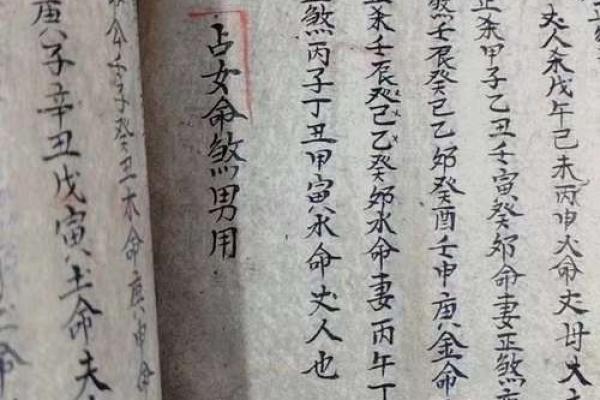 丈人杀戊午己未丙申火命丈母大
正杀甲子乙丑壬寅癸卯命妻正煞
煞壬辰癸己乙卯癸酉壬申庚金命
杀壬辰癸己乙癸卯水命妻丙午丁
正煞丙子丁丑甲寅水命丈人也
占女命煞男用
公壬子癸丑木命庚申命
庚子辛丑戊寅土命夫